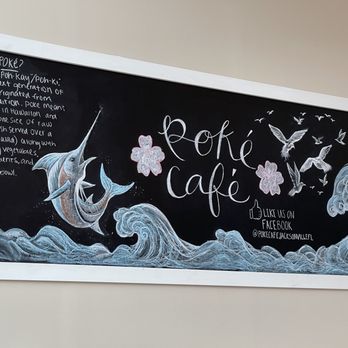 Poké?
Poh-Kay/Poh-Ki:
ext generation of
riginated from
Poke mean
in Hawaiian and
ne size of raw
sh served over a
along with
vegetables,
ents, and
bowl.
Poké
Café
LIKE US ON
FACEBOOK
@POKECAFEJACKSONVILLEFL